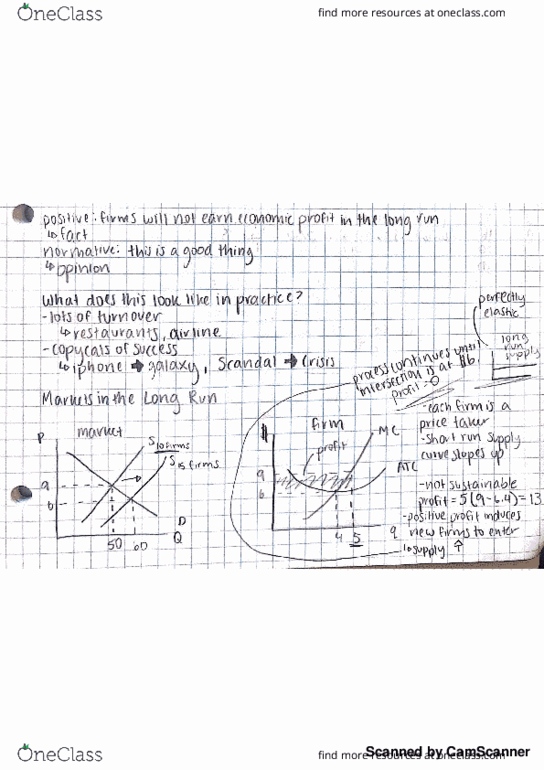 OneClass
find more resources at oneclass.com
positive: firms will not earn economic profit in the long run
↳ fact
normative: this is a good thing
↳ opinion
What does this look like in practice?
- lots of turnover
↳ restaurants, airline
- copycats of success
↳ iphone → galaxy, Scandal → Crisis
Markets in the Long Run
perfectly
elastic
long
run
supply
process continues until
intersection is at $6
profit = 0
market
P
S 10 firms
S 15 firms
9
6
50
60
D
Q
firm
$
profit
MC
ATC
9
6
4
5
q
- each firm is a
price taker
- short run supply
curve slopes up
- not sustainable
profit = 5(9-6.4)=13
- positive profit induces
new firms to enter
↳ supply ↑
OneClass
find more resources at oneclass.com
Scanned by CamScanner